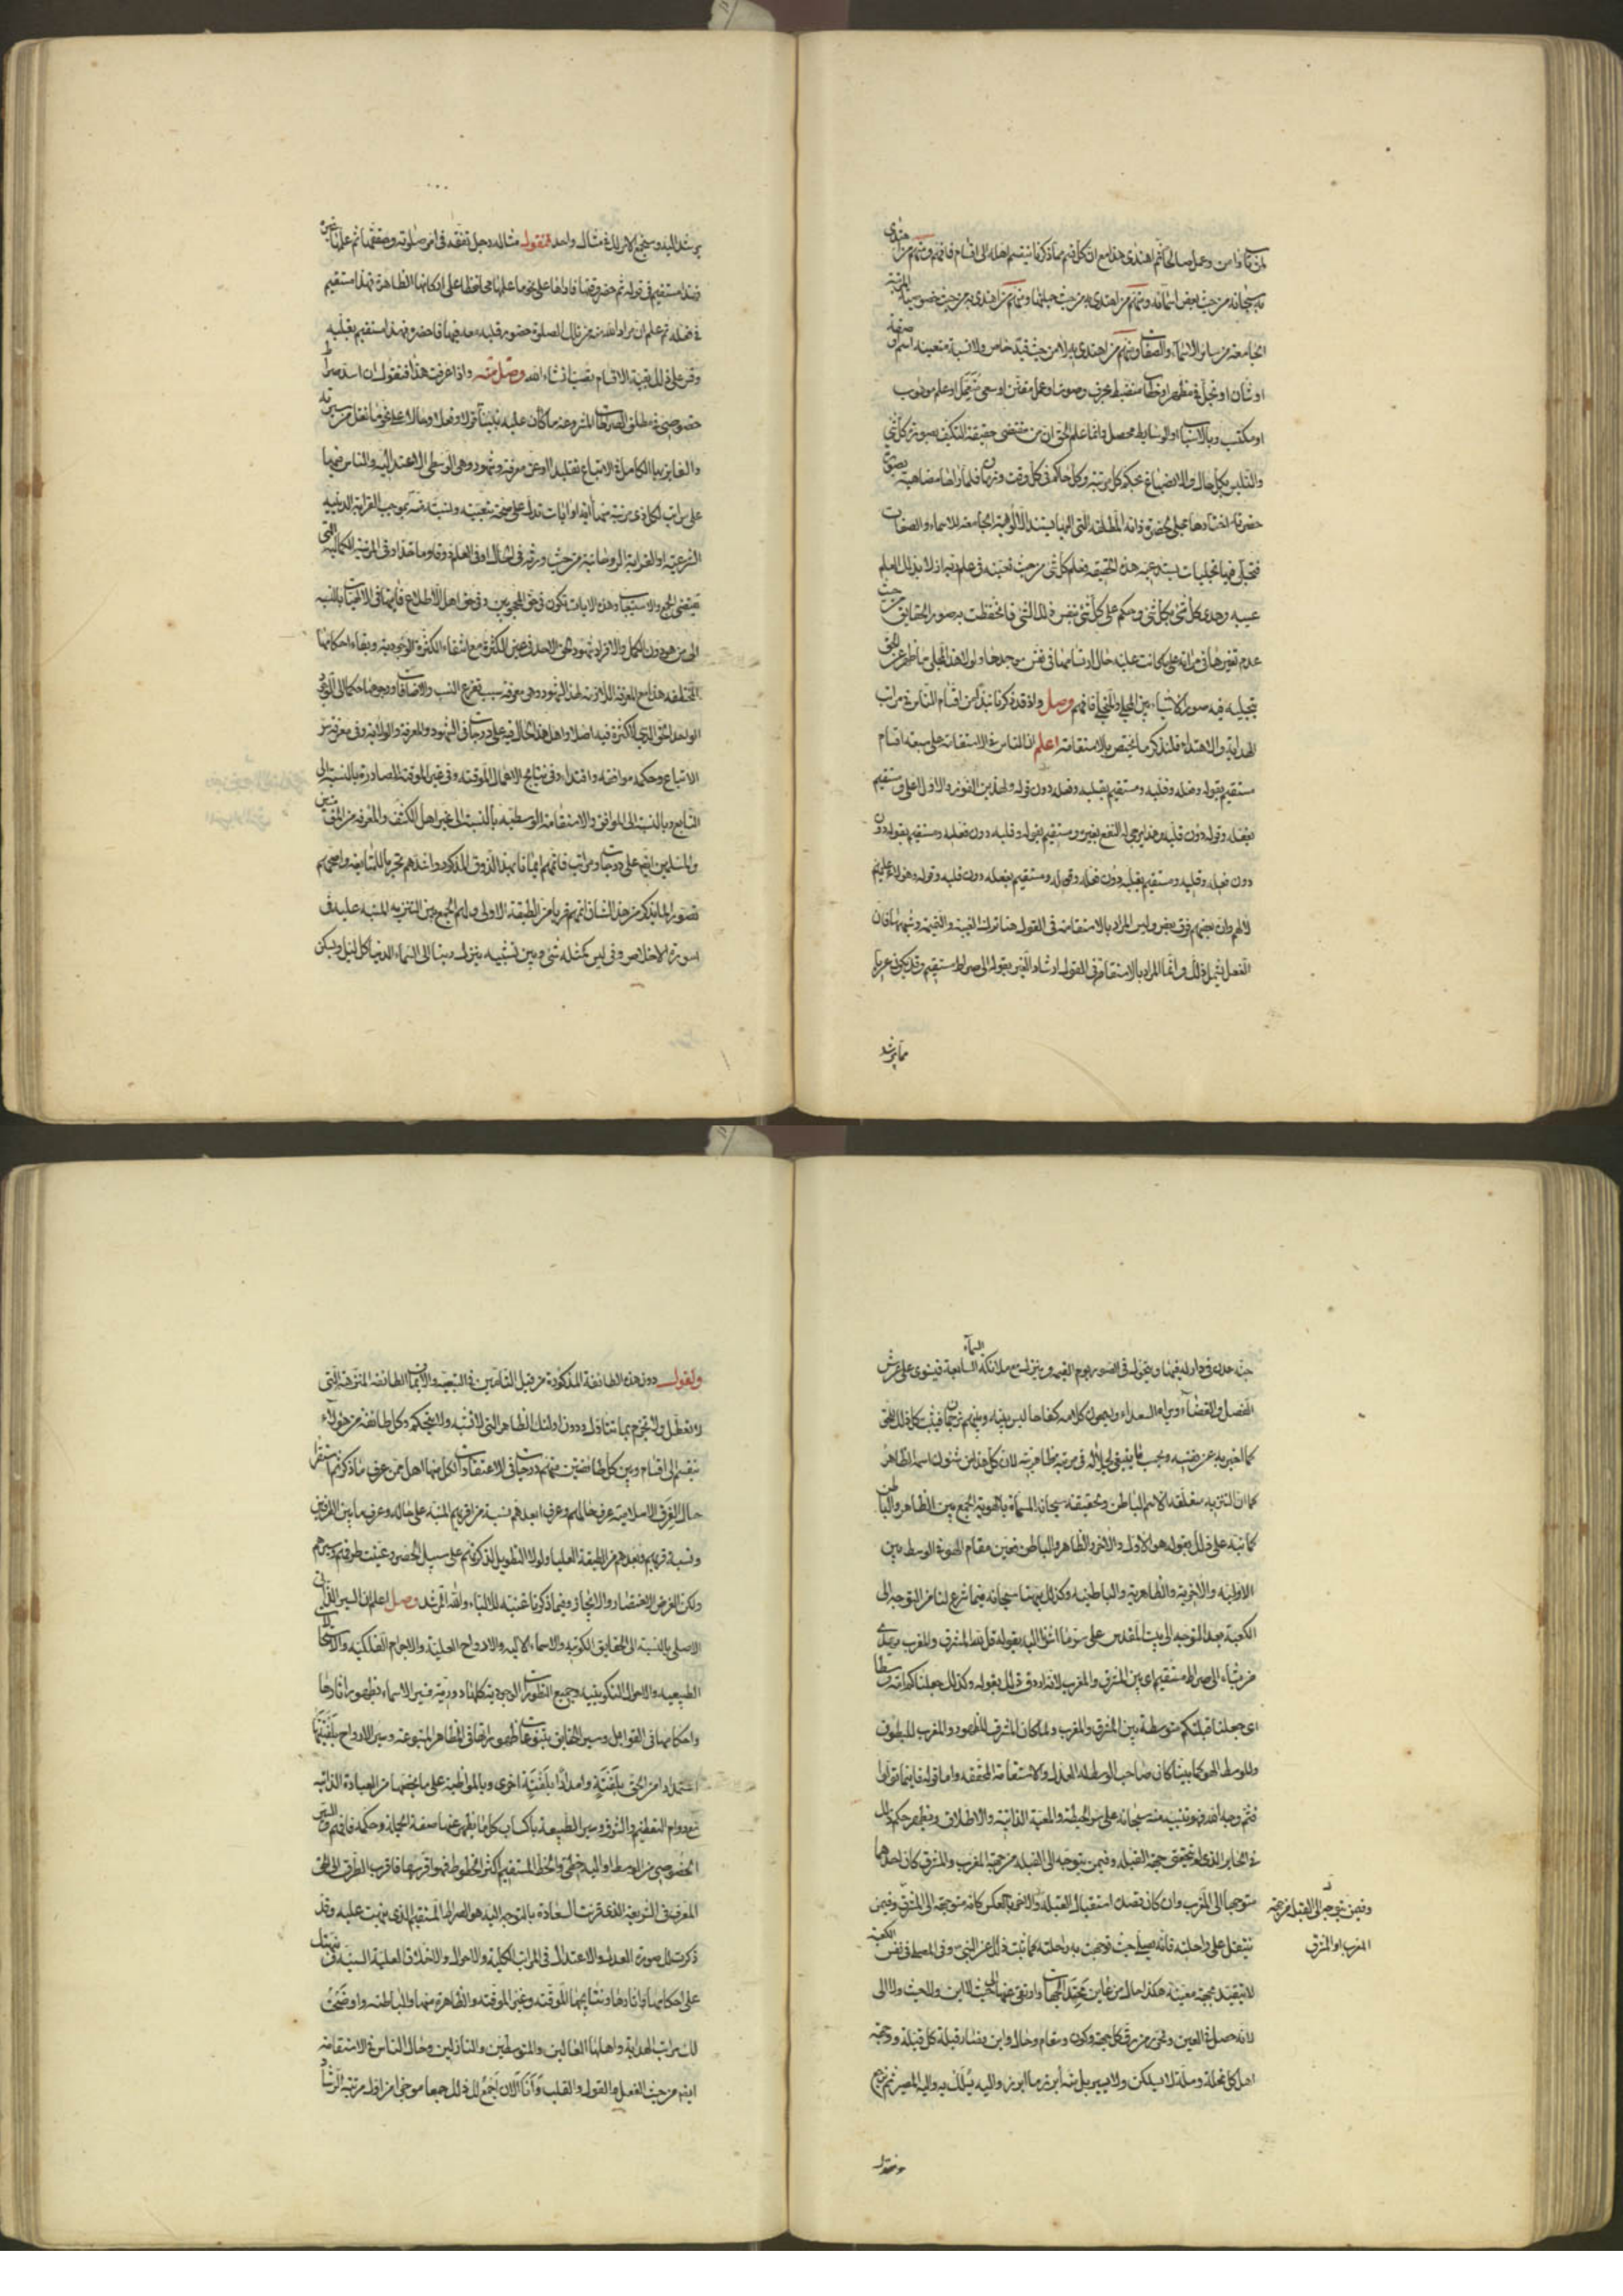 لمن تاب وامن وعمل صالحا ثم اهتدى هذا مع ان كل قسم مما ذكرنا ينقسم اهله الى اقسام فافهم ومنهم من اهتدى
به سبحانه من حيث بعض اسمائه ومنهم من اهتدى به من حيث جملتها ومنهم من اهتدى به من حيث خصوصية المرتبة
الجامعة بين سائر الاسماء والصفات ومنهم من اهتدى به لا من حيث قيد خاص ولا نسبة متعينة اسم او صفة
او شان او تجل في مظهر او خطاب منضبط بحرف وصوت او عمل مقنن او سعى متعمل او علم موهوب
او مكتسب وبالاسباب او الوسايط محصل وانما علم الحق ان من مقتضى حقيقته التكيف بصورة كل شئ
والتلبس بكل حال والانصباغ بحكم كل مرتبة وكل حاكم في كل وقت وزمان فلما راها مضاهية بصورة
حضرته اختارها مجلى لحضرة ذاته المطلقة التي اليها يستند الالوهية الجامعة للاسماء والصفات
فتجلى فيها تجليات يستوعبه هذه الحقيقة فعلم كل شئ من حيث تعينه في علم ربه ازلا بذلك العلم
عينه وحدى كل شئ بكل شئ وحكم على كل شئ بنفس ذلك الشئ فانحفظت به صور الحقايق من حيث
عدم تغيرها في مراته على ما كانت عليه حال ارتسامها في نفس موجدها ولولا هذا المجلى ما ظهر عن الحق
بتجليه فيه صور الاشياء بين المجلى والمتجلى فافهم وصل واذ قد ذكرنا نبذا من اقسام الناس في مراتب
الهداية والاهتداء فلنذكر ما يختص بالاستقامة اعلم ان الناس في الاستقامة على سبعة اقسام
مستقيم بقوله وفعله وقلبه ومستقيم بقلبه وفعله دون قوله ولهذين الفوز والاول اعلى ومستقيم
بفعله وقوله دون قلبه وهذا يرجى له النفع بغيره ومستقيم بقوله وقلبه دون فعله ومستقيم بقوله دون
دون فعله وقلبه ومستقيم بقلبه دون فعله وقوله ومستقيم بفعله دون قلبه وقوله وهولاء عليهم
لا لهم وان بعضهم فوق بعض وليس المراد بالاستقامة في القول هنا ترك الغيبة والنميمة وشبهها فان
الفعل يشمل ذلك وانما المراد بالاستقامة في القول ارشاد الغير بقوله الى صراط مستقيم وقد يكون عريا
مما يرشد
يرشد اليه وسنجمع الامر لك في مثال واحد فنقول مثاله رجل تفقه في امر صلوته وحققها ثم علمها غيره
فهذا مستقيم في قوله ثم حضر وقتها فاداها على نحو ما علمها محافظا على اركانها الظاهرة فهذا مستقيم
في فعله ثم علم ان مراد الله منه من تلك الصلوة حضور قلبه معه فيها فاحضره فهذا مستقيم بقلبه
وقس على ذلك بقية الاقسام تصب انشاء الله وصل منه واذا عرفت هذا فنقول ان اسد صراط
خصوصى في مطلق الصراطات المشروعة ما كان عليه نبينا قولا وفعلا وحالا على نحو ما نقل من سيرته
والفايز بها الكامل في الاتباع تقليدا او عن معرفة وشهود وهى الوسطى الاعتدالية والناس فيها
على مراتب لكل ذى مرتبة منها اية او ايات تدل على صحة تبعيته ونسبته منه بموجب القرابة الدينية
الشرعية او القرابة الروحانية من حيث ورثه في الحال او في العلم ذوقا وماخذا وفي المرتبة الكمالية التي
تقتضى الجمع والاستيعاب وهذه الايات تكون في حق المحجوبين وفي حق اهل الاطلاع فايتها في الالهيات بالنسبة
الى من هو دون الكمل والافراد شهود الحق الاحد في عين الكثرة مع انتفاء الكثرة الوجودية وبقاء احكامها
المختلفة هذا مع المعرفة اللازمة لهذا الشهود وهى معرفة سبب تفرع النسب والاضافات ورجوعها حكما الى الوجود
الواحد الحق الذي لا كثرة فيه اصلا واهل هذا الحال فيه على درجات في الشهود والمعرفة والولاية وفي معرفة سر
الاتباع وحكمه موافقة واقتداء وفي نتايج الاعمال الموقتة وفي غير الموقتة الصادرة بالنسبة الى
التابع وبالنسبة الى الموافق والاستقامة الوسطية بالنسبة الى غير اهل الكشف والمعرفة من المؤمنين
والمسلمين ايضا على درجات ومراتب فاتمهم ايمانا بهذا الذوق المذكور واشدهم تحريا للمتابعة واصحهم
تصورا لما يذكر من هذا الشان اتمهم قربا من الطبقة الاولى ولهم الجمع بين التنزيه المنبه عليه في
سورة الاخلاص وفي ليس كمثله شئ وبين تشبيه ينزل ربنا الى السماء الدنيا كل ليلة ويسكن
جنة عدن في دار له فيها ويتحول في الصور يوم القيمة وينزل مع ملائكة السماء السابعة فيستوى على عرش
الفصل والقضاء ويراه السعداء ويسمعون كلامه كفاحا ليس بينه وبينهم ترجمان فيثبت كل ذلك للحق
كما اخبر به عن نفسه وبحسب ما ينبغى لجلاله في مرتبة ظاهريته لان كل هذا من شئون اسمه الظاهر
كما ان التنزيه متعلقه الاسم الباطن ولحقيقته سبحانه المسماة بالهوية الجمع بين الظاهر والباطن
كما نبه على ذلك بقوله هو الاول والاخر والظاهر والباطن فعين مقام الهوية الوسط بين
الاولية والاخرية والظاهرية والباطنية وكذلك نبهنا سبحانه فيما شرع لنا من التوجه الى
الكعبة بعد التوجه الى بيت المقدس على سر ما اشرنا اليه بقوله قل لله المشرق والمغرب يهدى
من يشاء الى صراط مستقيم اى بين المشرق والمغرب لانه اردف ذلك بقوله وكذلك جعلناكم امة وسطا
اى جعلنا قبلتكم متوسطة بين المشرق والمغرب ولما كان المشرق للظهور والمغرب للبطون
وللوسط الهو كما بينا كان صاحب الوسط له العدل والاستقامة المحققة واما قوله فاينما تولوا
فثم وجه الله فهو تنبيه منه سبحانه على سر الحيطة والمعية الذاتية والاطلاق ويظهر حكم ذلك
في الحاير الذى لم يتحقق جهة القبلة وفيمن يتوجه الى القبلة من جهة المغرب والمشرق كان احدهما
متوجها الى المغرب وان كان قصده استقبال القبلة والاخر بالعكس كانه متوجه الى المشرق وفيمن
وفيمن يتوجه الى القبلة من جهة
المغرب او المشرق
يتنفل على راحلته فانه يصلى حيث توجهت به راحلته كما ثبت ذلك عن النبى وفي المصلى في نفس الكعبة
لا يتقيد بجهة معينة هكذا حال من عاين محتد الجهات وارتقى عنها الى حيث لا اين ولا حيث ولا الى
لانه حصل في العين وتحرر من رق كل جهة وكون ومقام وحال واين فصار قبلة كل قبلة ووجهة
اهل كل نحلة وملة
ونقول
ونقول دون هذه الطائفة المذكورة من قبل التامين في التبعية والايمان الطائفة المنزهة التي
لا تعطل ولا تجزم بما تتاول ودون اولئك الظاهرية التي لا تشبه ولا تتحكم وكل طائفة من هولاء
تنقسم الى اقسام وبين كل طائفتين منهم درجات في الاعتقادات لكل منها اهل فمن عرف ما ذكرته ثم استقرا
حال الفرق الاسلامية عرف حالهم وعرف ابعدهم نسبة من اقربهم المنبه على حاله وعرف ما بين الطرفين
ونسبة قربهم وبعدهم من الطبقة العليا ولولا التطويل لذكرتهم على سبيل الحصر وعينت طرقهم وسيرهم
ولكن الغرض الاختصار والايجاز وفيما ذكرنا غنية للالباء والله المرشد وصل اعلم ان السير القرانى
الاصلى بالنسبة الى الحقايق الكونية والاسماء الالهية والارواح العلية والاجرام الفلكية والاستحالات
الطبيعية والاحوال التكوينية وجميع التطورات الوجودية كلها دورية فسير الاسماء بظهور اثارها
واحكامها في القوابل وسير الحقايق بتنوعات ظهوراتها في المظاهر المتبوعة وسير الارواح بتلفتها
استمدادا من الحق بلفتة وامدادا بلفتة اخرى وبالمواظبة على ما يخصها من العبادة الذاتية
مع دوام التعظيم والشوق وسير الطبيعة باكساب كل ما يظهر عنها صفة الجملة وحكمه فافهم والسير
الخصوصى من الوسط واليه خطى والخط المستقيم اكثر الخطوط فهو اقربها فاقرب الطرق الى الحق
المعرف في الشريعة الذى قرنت السعادة بالتوجه اليه هو الصراط المستقيم الذى نبهت عليه وقد
ذكرت لك صورة العدل والاعتدال في المراتب الكلية والاحوال والاخلاق العلية السنية ونبهتك
على احكامها واثارها ونتايجها الموقتة وغير الموقتة والظاهرة منها والباطنة واوضحت
لك مراتب الهداية واهلها الغالين والمتوسطين والنازلين وحال الناس في الاستقامة
ايضا من حيث الفعل والقول والقلب وانا الان اجمع لك ذلك جمعا موجزا من اول مرتبة الرشاد